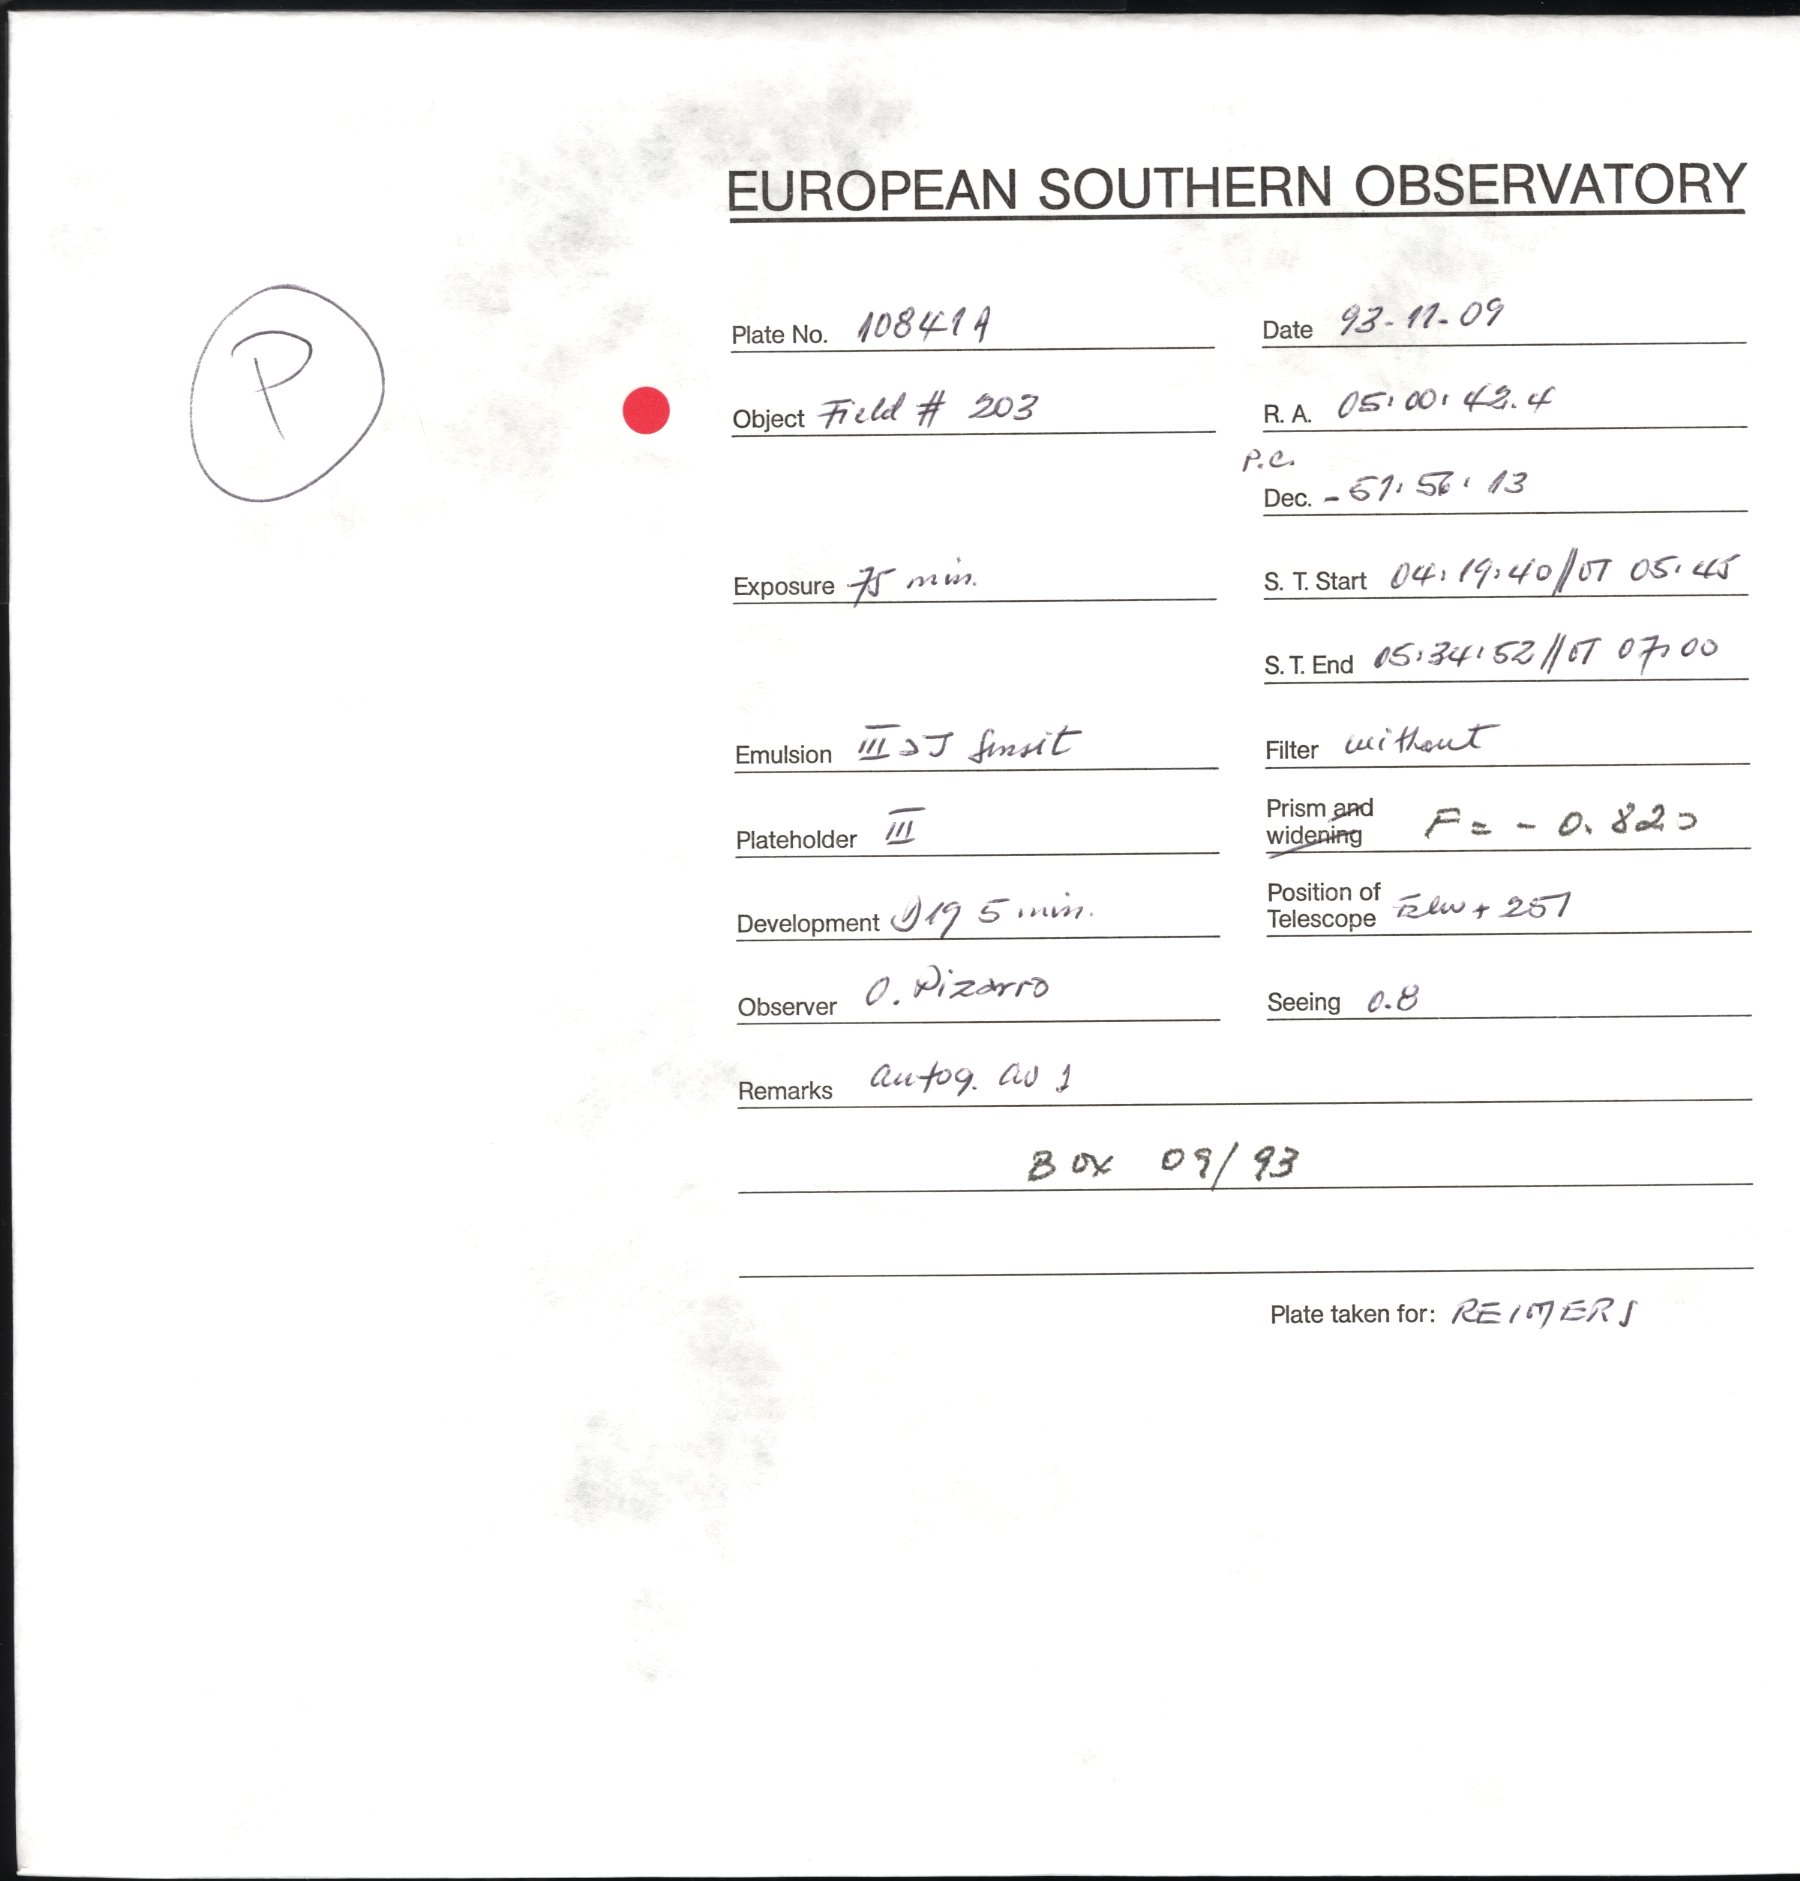 EUROPEAN SOUTHERN OBSERVATORY
P
Plate No. 10841A
Date 93-11-09
Object Field # 203
R. A. 05:00:42.4
P.C.
Dec. -51:56:13
Exposure 75 min.
S. T. Start 04:19:40//UT 05:45
S. T. End 05:34:52//UT 07:00
Emulsion IIIaJ sensit
Filter without
Plateholder III
Prism and
widening F = - 0.820
Development D19 5 min.
Position of
Telescope + 251
Observer O. Pizarro
Seeing 0.8
Remarks autog. av 1
Box 09/93
Plate taken for: REIMERS